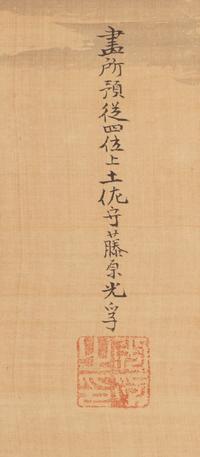 畫所預従四位上土佐守藤原光孚